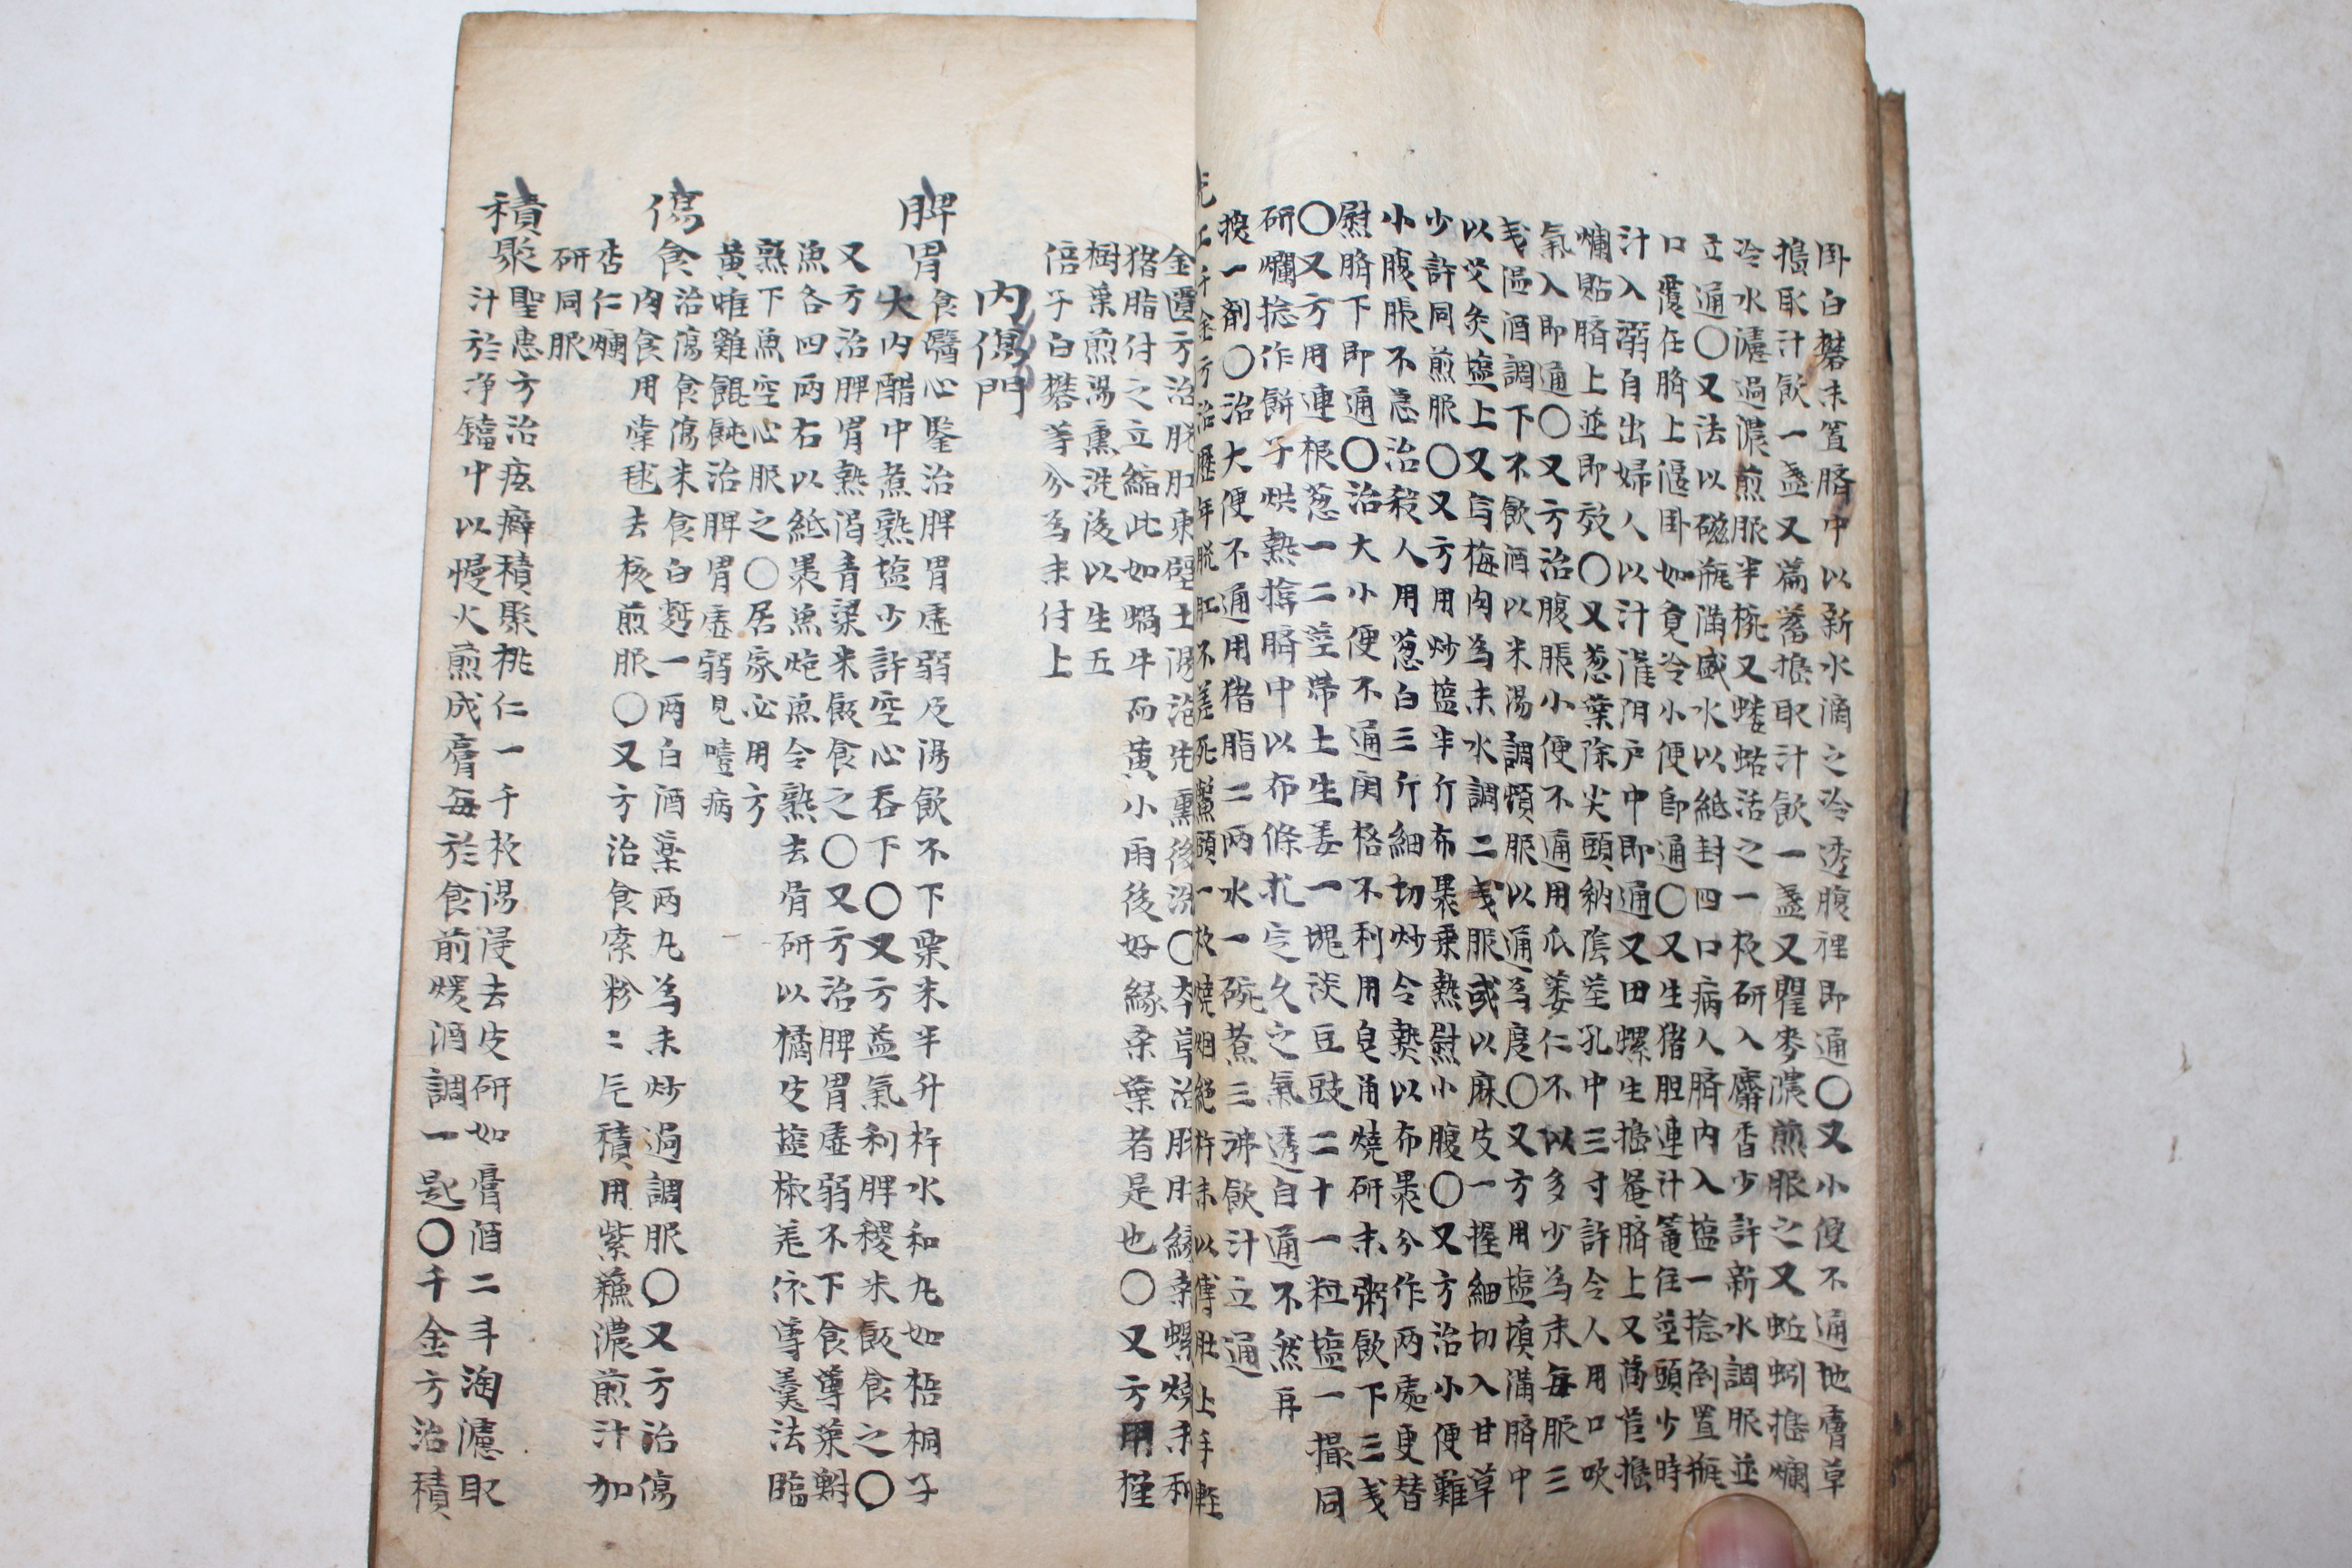 卧白礬末置臍中以新水滴之冷透腹裡即通〇又小便不通地膚草
搗取汁飮一盞又萹蓄搗取汁飮一盞又瞿麥濃煎服之又蚯蚓搗爛
冷水濾過濃煎服半椀又螻蛄活之一枚研入麝香少許新水調服並
立通〇又法以磁甁滿盛水以紙封四口病人臍內入塩一捻倒置甁
口覆在臍上偃卧如覓冷小便卽通〇又生猪胆連汁篭住莖頭少時
汁入溺自出婦人以汁灌阴戶中即通又田螺生搗罨臍上又萵苣搗
爛貼臍上並即效〇又葱葉除尖頭納陰莖孔中三寸許令人用口吹
氣入即通〇又方治腹脹小便不通用瓜蔞仁不以多少為末每服三
戔區酒調下不飮酒以米湯調頻服以通為度〇又方用塩塡滿臍中
以艾灸塩上又烏梅肉為末水調二戔服或以麻皮一握細切入甘草
少許同煎服〇又方用炒塩半斤布裹乘熱慰小腹〇又方治小便難
小腹脹不急治殺人用葱白三斤細切炒令㷱以布裹分作两處更替
慰臍下即通〇治大小便不通関格不利用皂角燒研末粥飮下三戔
〇又方用連根葱一二莖帶土生姜一塊淡豆豉二十一粒塩一撮同
研爛捻作餠子烘熱掩臍中以布條扎定久之氣透自通不然再
換一劑〇治大便不通用猪脂二两水一碗煮三沸飮汁立通
千金方治歷年脱肛不差死鱉頭一枚燒烟絶杵末以傅肚上手輕
金匱方治脱肛東壁土湯泡先熏後洗〇本草治脱肛緣桑螺燒末和
猪脂付之立縮此如蝸牛而黃小雨後好緣桑葉者是也〇又方用槿
樹葉煎湯熏洗後以生五
倍子白礬等分為末付上
內傷門
脾胃 食醫心鑒治脾胃虛弱及湯飮不下粟米半升杵水和丸如梧桐子
大內醋中煮熟塩少許空心吞下〇又方益氣利脾稷米飯食之〇
又方治脾胃熱渴青粱米飯食之〇又方治脾胃虛弱不下食蓴菜鮒
魚各四两右以紙裹魚炮魚令熟去骨研以橘皮塩椒羌依蓴羹法臨
熟下魚空心服之〇居家必用方
黃雌雞餛飩治脾胃虛弱見噎病
傷食 治傷食傷米食白麪一两白酒藥两丸為末炒過調服〇又方治傷
肉食用棠毬去核煎服〇又方治食索粉〻乞積用紫蘓濃煎汁加
杏仁爛
研同服
積聚 聖惠方治痃癖積聚桃仁一千枚湯浸去皮研如膏酒二斗淘濾取
汁於淨鐺中以慢火煎成膏每於食前煖酒調一匙〇千金方治積